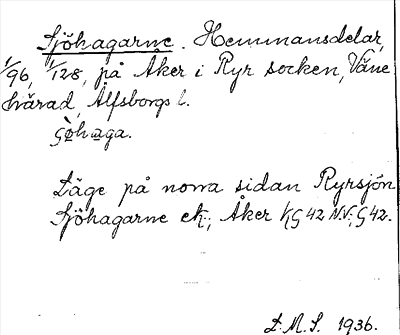 Sjöhagarne. Hemmansdelar,
1/96, 1/128, på Åker i Ryr socken, Väne
härad, Älfsborgs l.
Läge på norra sidan Ryrsjön
Sjöhagarne ek; Åker KG 42 NV; G 42.
D. M. S. 1936.